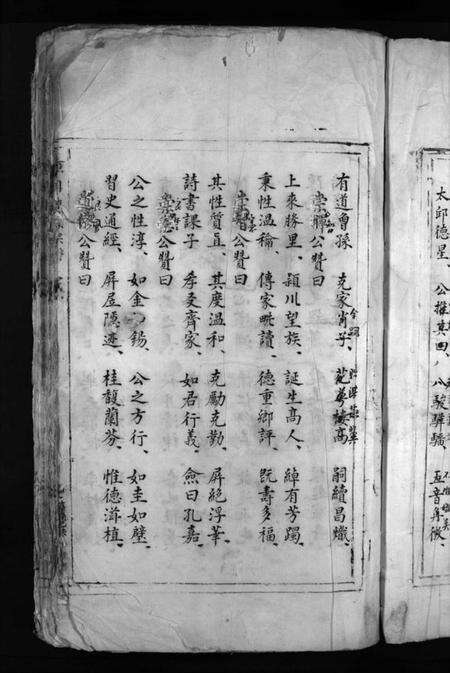 太邱德星、公推其四、八駿驊騮、五音
有道曾孫、克家肖子、萼樓高、嗣續昌熾、
公贊曰
上來勝里、潁川望族、誕生高人、綽有芳躅、
秉性温綸、傳家畊讀、德重鄉評、既壽多福、
公贊曰
其性質直、其度温和、克勵克勤、屏絕浮華、
詩書課子、孝友齊家、如君行義、僉曰孔嘉、
崇公贊曰
公之性淳、如金如錫、公之方行、如圭如璧、
習史通經、屏居隐迹、桂馥蘭芬、惟德滋植、
公贊曰